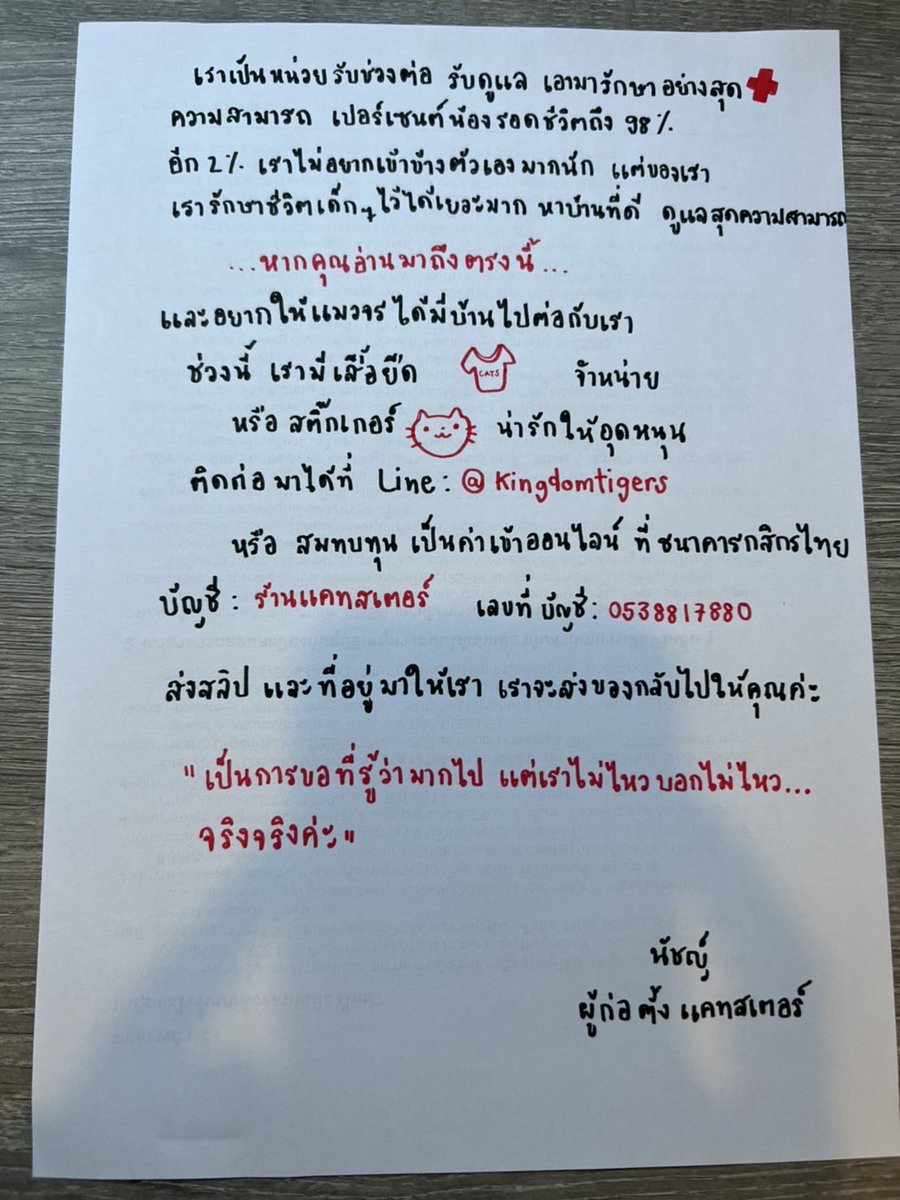 เราเป็นหน่วยรับช่วงต่อ รับดูแล เอามารักษาอย่างสุด
ความสามารถ เปอร์เซนต์น้องรอดชีวิตถึง 98%
อีก 2% เราไม่อยากเข้าข้างตัวเองมากนัก แต่ของเรา
เรารักษาชีวิตเด็กๆไว้ได้เยอะมาก หาบ้านที่ดี ดูแลสุดความสามารถ
...หากคุณอ่านมาถึงตรงนี้...
และอยากให้แมวจร ได้มีบ้านไปต่อกับเรา
ช่วงนี้ เรามี เสื้อยืด CATS จำหน่าย
หรือ สติ๊กเกอร์ น่ารักให้อุดหนุน
ติดต่อมาได้ที่ Line: @Kingdomtigers
หรือ สมทบทุน เป็นค่าเข้าออนไลน์ ที่ ธนาคารกสิกรไทย
บัญชี : ร้านแคทสเตอร์ เลขที่บัญชี: 0538817880
ส่งสลิป และ ที่อยู่มาให้เรา เราจะส่งของกลับไปให้คุณค่ะ
"เป็นการขอที่รู้ว่ามากไป แต่เราไม่ไหว บอกไม่ไหว...
จริงจริงค่ะ"
นัชญ์
ผู้ก่อตั้ง แคทสเตอร์